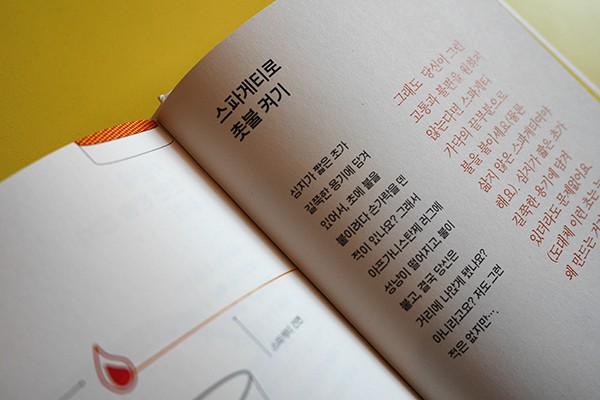 스파게티로
촛불 켜기
심지가 짧은 초가
길쭉한 용기에 담겨
있어서, 초에 불을
붙이려다 손가락을 덴
적이 있나요? 그래서
아프가니스탄제 러그에
성냥이 떨어지고, 불이
붙고, 결국 당신은
거리에 나앉게 됐나요?
아니라고요? 저도 그런
적은 없지만…,
그래도 당신이 그런
고통과 불편을 원하지
않는다면 스파게티
가닥의 끝부분으로
불을 붙이세요(물론
삶지 않은 스파게티여야
해요). 심지가 짧은 초가
길쭉한 용기에 담겨
있더라도 문제없어요.
(도대체 이런 초는
왜 만드는
스파게티 건면